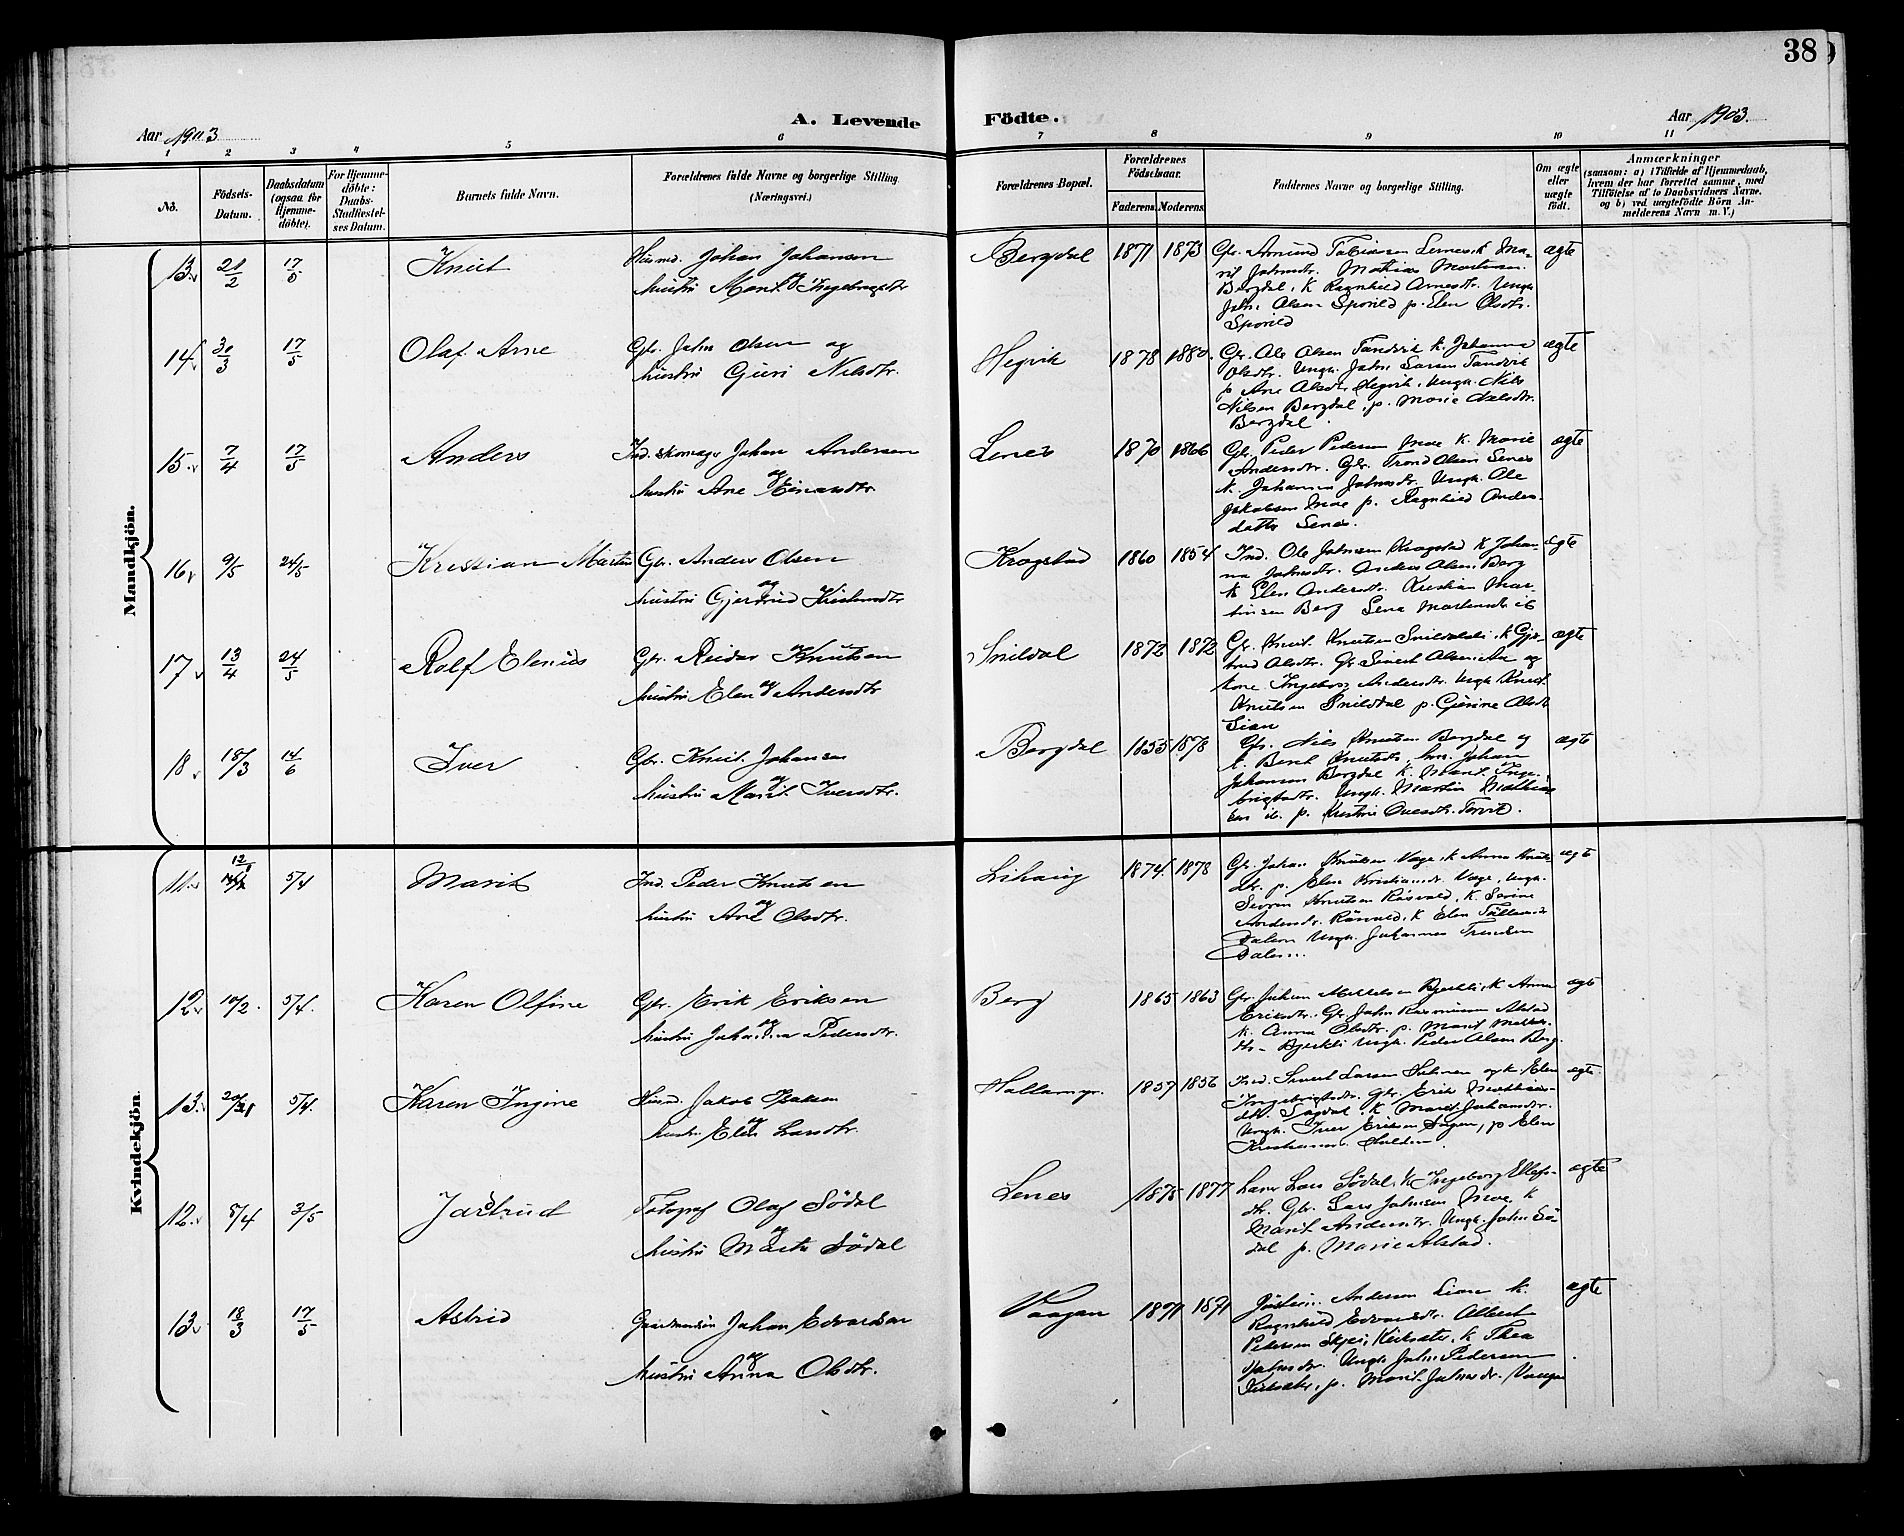 38
Aar 1903
A. Levende
Födte.
Aar 1903.
1 2 3 4 5 6 7 8 9 10 11
No.
Födsels-
Datum.
Daabsdatum
(ogsaa for
Hjemme-
döbte).
For Hjemme-
döbte:
Daabs-
Stadfæstel-
ses Datum.
Barnets fulde Navn.
Forældrenes fulde Navne og borgerlige Stilling
(Næringsvei.)
Forældrenes Bopæl.
Forældrenes
Födselsaar.
Faderens. Moderens.
Faddernes Navne og borgerlige Stilling.
Om ægte
eller
uægte
födt.
Anmærkninger
(saasom: a) i Tilfælde af Hjemmedaab,
hvem der har forrettet samme, med
Tilföielse af to Daabsvidners Navne,
og b) ved uægtefödte Börn An-
melderens Navn m. V.)
Mandkjön.
13 21/2 17/5 Knut Husmd. Johan Johansen
hustru Marit Ingebrigtsdtr
Bergdal 1871 1873 Gbr. Amund Tobiassen Lenes k. Ma-
rit Johnsdtr. Mathias Mortensen
Bergdal, k Ragnhild Arnesdtr. Ungk.
John Olsen Sporild p. Elen Olsdtr.
Sporild
ægte
14 30/3 17/5 Olaf Arne Gbr. John Olsen og
hustru Guri Nilsdtr
Hegvik 1878 1880. Gbr. Ole Olsen Tandvik k. Johanna
Olsdtr. Ungk. John Larsen Tandvik
p Ane Olsdtr Hegvik, Ungk. Nils
Nilsen Bergdal, p. Marie
Bergdal.
ægte
15 7/4 17/5 Anders Ind. skomager Johan Andersen
og
hustru Ane Einarsdtr.
Lenes 1870 1866 Gbr. Peder Pedersen Moe k. Marie
Andersdtr. Gbr. Trond Olsen Lenes
k. Johanna Johnsdtr. Ungk. Ole
Jakobsen Moe p. Ragnhild Anders-
datter Lenes.
ægte
16 9/5 24/5 Kristian Martin Gbr. Anders Olsen
og
hustru Gjertrud Kristensdtr
Krogstad 1860 1854 Ind. Ole Johnsen Krogstad k Johan-
na Johnsdtr. Anders Olsen Berg
k Elen Andersdtr. Kristian Mar-
tinsen Berg Lena Mortensdtr ib
ægte
17 13/4 24/5 Rolf Elenius Gbr. Reidar Knutsen
og
hustru Elen Andersdtr
Snildal 1872 1872 Gbr. Knut Knutsen Snildalsli k Gjer-
trud Olsdtr. Gbr Sivert Olsen Aa og
kone Ingeborg Andersdtr. Ungk Knut
Knutsen Snildal p. Gurine Olsdtr
Lian
ægte
18 18/3 14/6 Iver Gbr. Knut Johansen
og
hustru Marit Iversdtr.
Bergdal 1855 1878 Gbr. Nils Knutsen Bergdal og
k. Berit Knutsdtr, hm. Johan
Johansen Bergdal k. Marit Inge-
brigtsdtr. Ungk. Martin Mathias-
sen ib. p. Kristine
ægte
Kvindekjön.
11 12/1 5/4 Marit Ind. Peder Knutsen
og
hustru Ane Olsdtr.
Lihaug 1874 1878 Gbr. Johan Knutsen Vage k Anna Knuts
dtr. p. Elen Kristiansdtr. Vage, Ungk.
Sevrin Knutsen Rösvald, k. Serine
Andersdtr. Rösvald, k Elen
Dalen Ungk. Johannes
Dalen.
ægte
12 10/2. 5/4. Karen Olfine Gbr. Erik Eriksen
og
hustru Johanna Pedersdtr.
Berg 1865 1863 Gbr. Johan Mikkelsen Bjerkli, k Anna
Eriksdtr. Gbr. John Rasmussen Alstad
k. Anna Olsdtr. p. Marit Mikkels-
dtr. Bjerkli Ungk. Peder Olsen Berg.
ægte
13. 5/4. Karen Ingine Husmd. Jakob Isaksen
og
hustru Elen Larsdtr.
1857 1856 Ind. Sivert Larsen og k Elen
Ingebrigtsdtr. Gbr. Erik Mathias-
k. Marit Johansdtr.
Ungk. Iver Eriksen p Elen
ægte
12 5/4 3/5 Jartrud Fotograf Olaf Södal
og
hustru Marta Södal
Lenes 1875 1877 Lars Södal, k Ingeborg Ellefs-
dtr. Gbr. Lars Johnsen Moe k
Marit Andersdtr. Ungk. John Sö-
dal p. Marie Alstad.
ægte
13 18/3 17/5 Astrid Gaardmandssön Johan Edvardsen
og
hustru Anna Olsdtr.
Vaagan 1871 1871 Anderson Lian k.
Ragnhild Edvardsdtr. Albert
Pedersen Skjei, Kirksæter, k. Thea
Johnsdtr. Ungk. John Pedersen
Kirksæter, p. Marit Johnsdtr. Vaagan
ægte